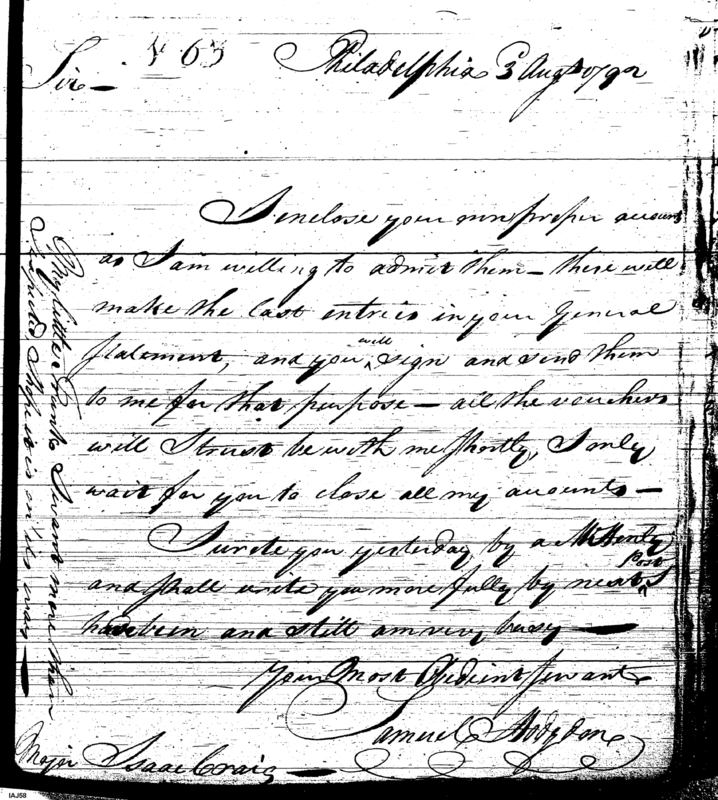 Philadelphia 3d Augt 1792
Sir —
I enclose your own proper account
as I am willing to admit them — these will
make the last entries in your General
Statement, and you will sign and send them
to me for that purpose — all the vouchers
will I trust be with me shortly, I only
wait for you to close all my accounts —
I wrote you yesterday by a Mr Henly
and shall write you more fully by next Post I
have been and still am very busy —
Your Most Obedient Servant
Samuel Hodgdon
Major Isaac Craig —
My little Trunk I want more than
I hope it is on its way —
IAJ58